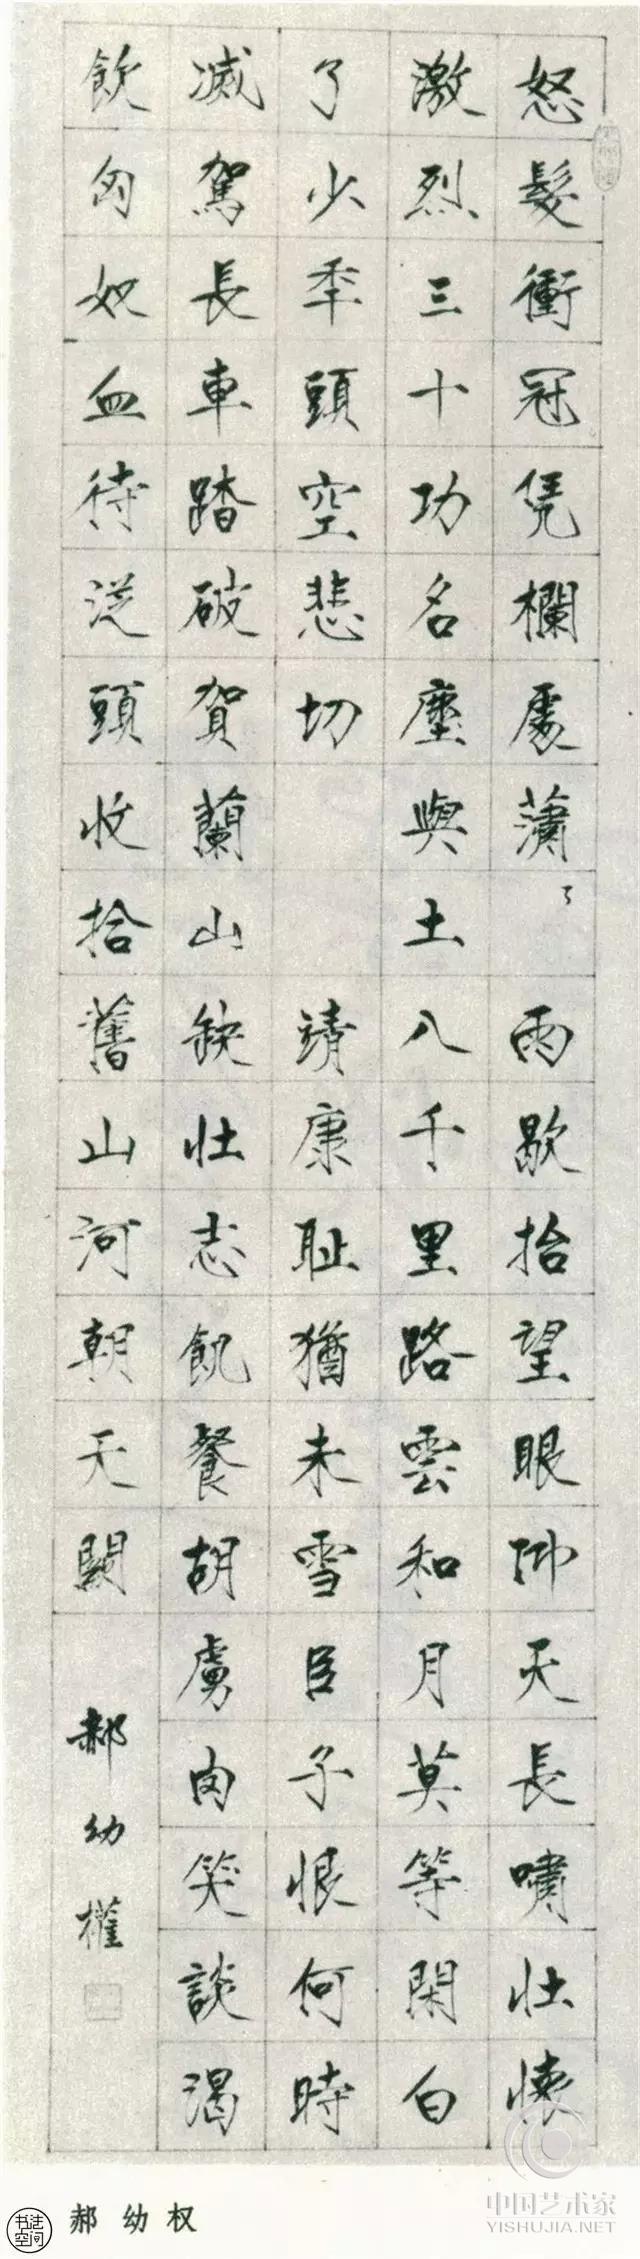 怒髮衝冠凭欄處蕭々雨歇抬望眼仰天長嘯壯懷
激烈三十功名塵與土八千里路雲和月莫等閑白
了少年頭空悲切 靖康耻猶未雪臣子恨何時
滅駕長車踏破賀蘭山缺壯志飢餐胡虜肉笑談渴
飲匈奴血待從頭收拾舊山河朝天闕
郝幼權
书法空间
郝幼权
中国艺术家
YISHUJIA.NET